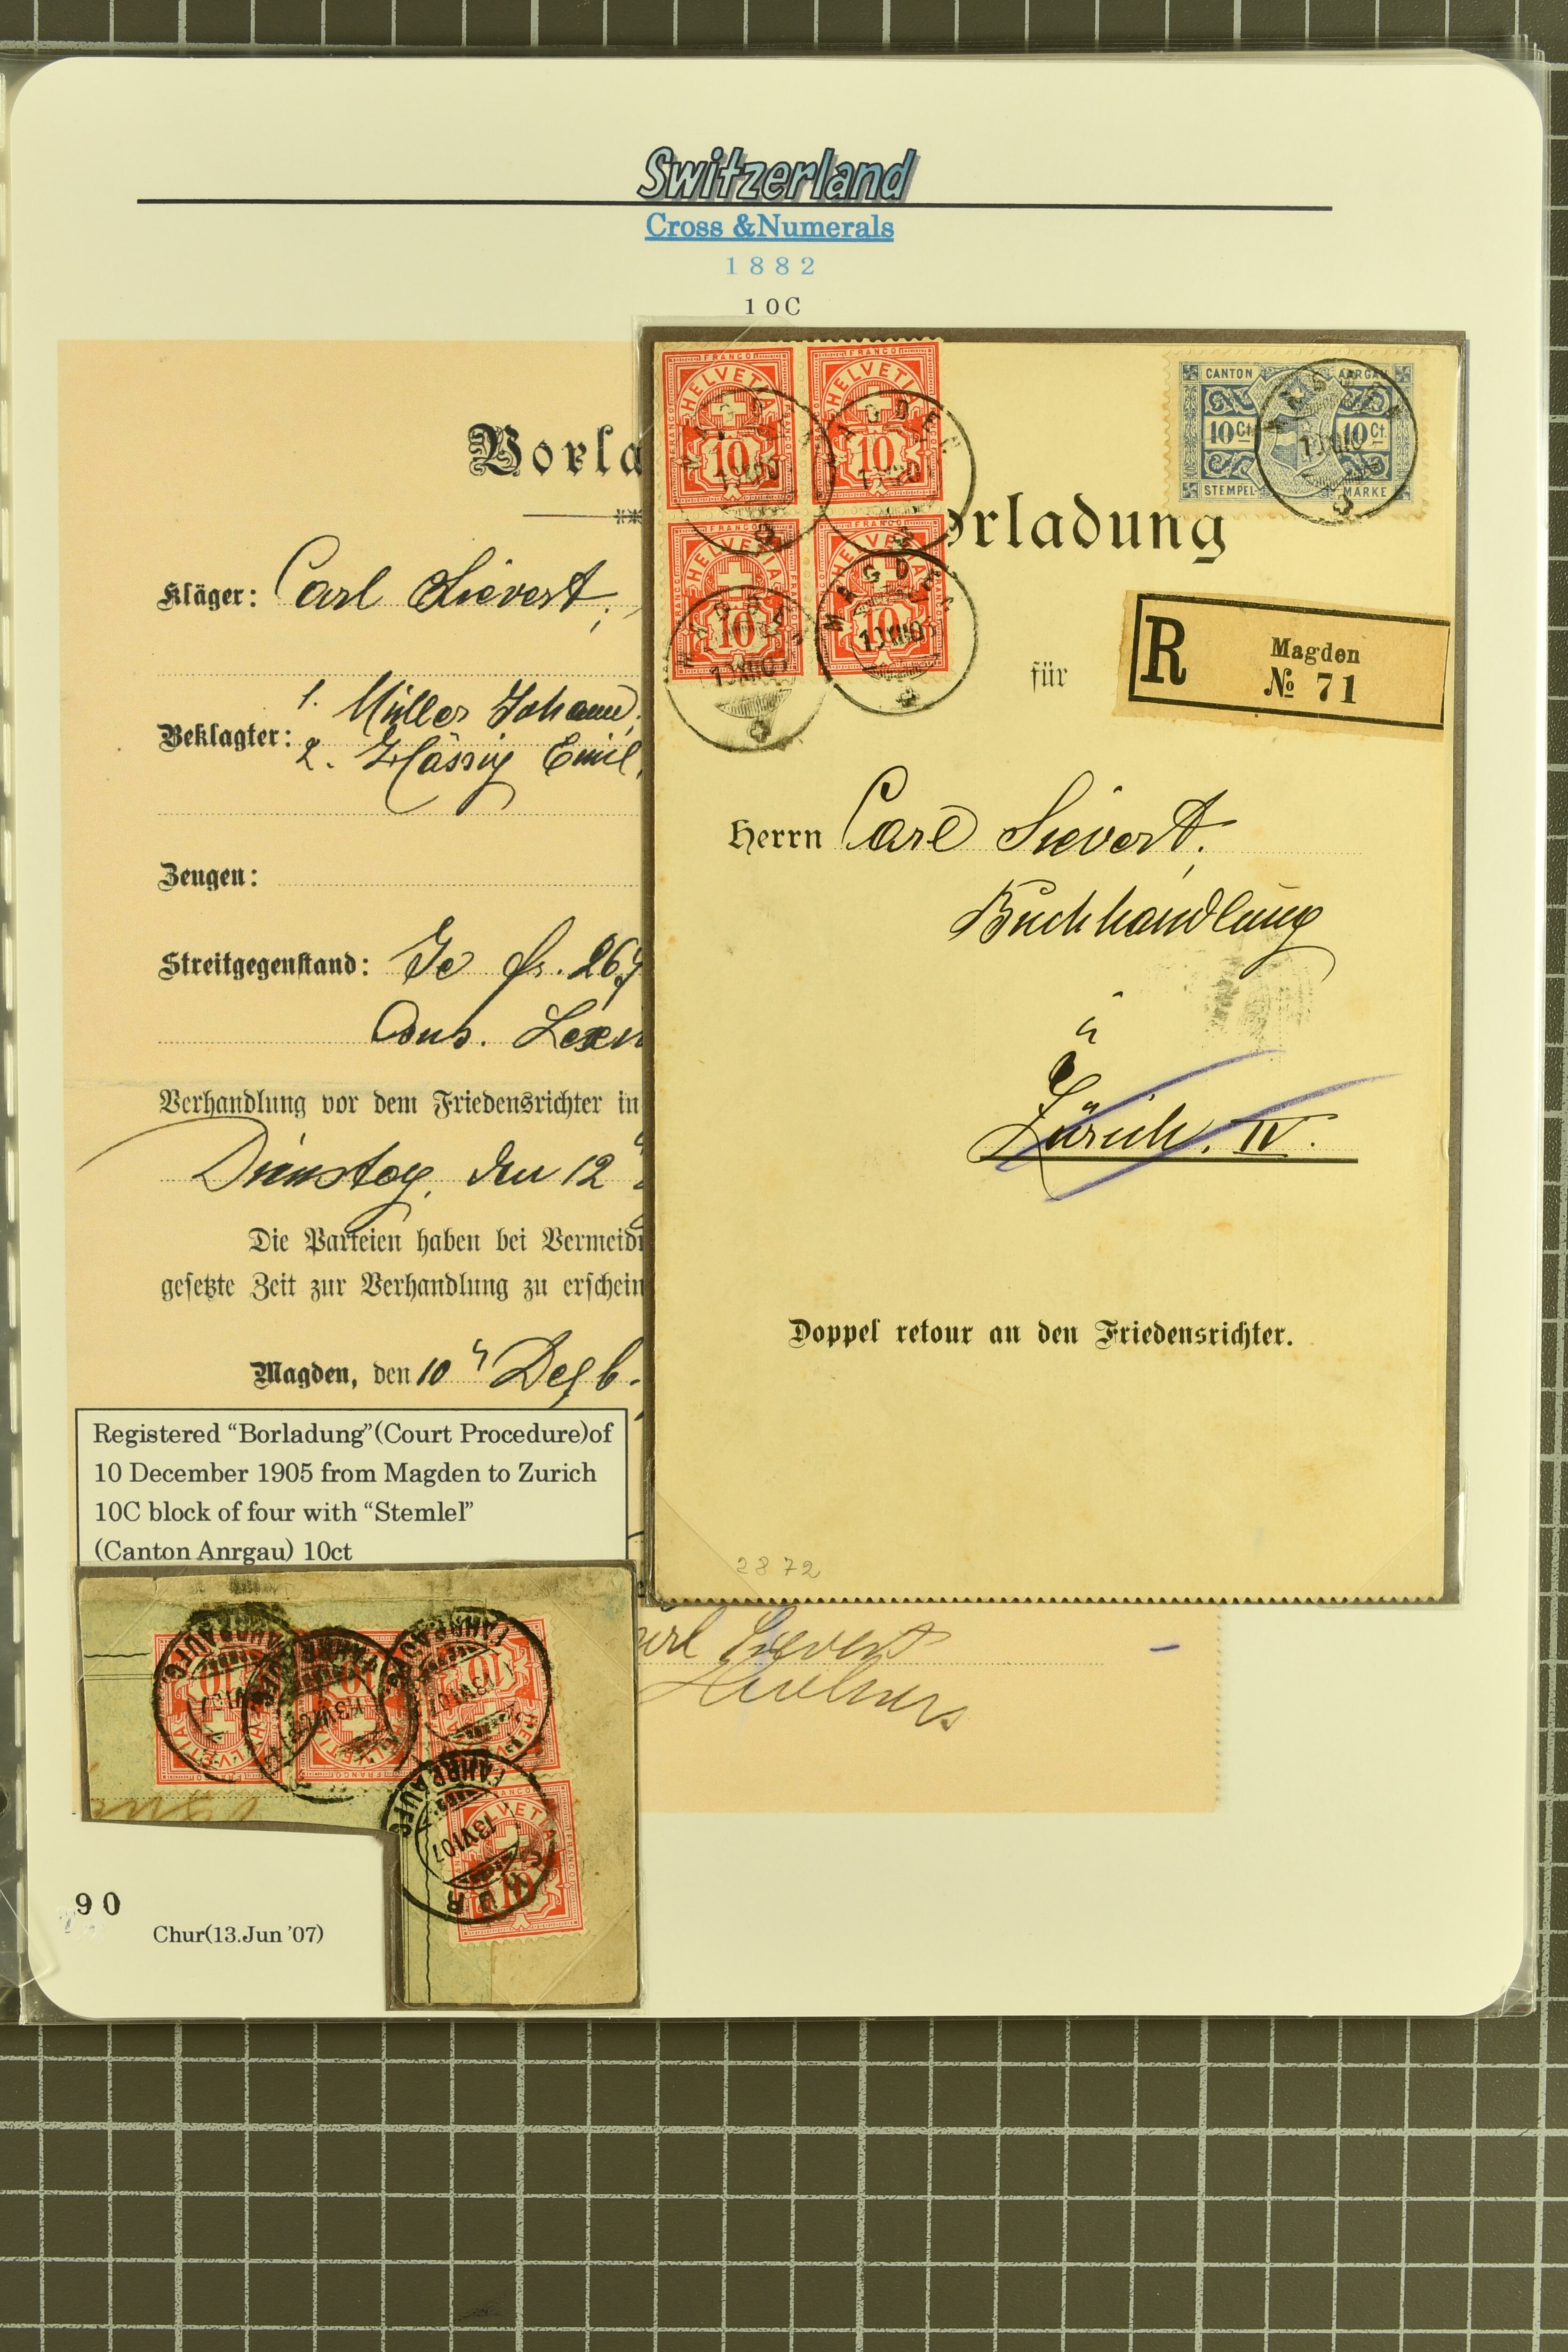 Switzerland
Cross &Numerals
1882
10C
Vorla
Kläger: Carl Sievert,
Beklagter: 1. Müller Johann,
2. Hässig Emil,
Zeugen:
Streitgegenstand: Je fr. 267
Cons. Lexn
Verhandlung vor dem Friedensrichter in
Dienstag, den 12
Die Parteien haben bei Vermeid
gesetzte Zeit zur Verhandlung zu erschein
Magden, den 10 Dezb.
FRANCO
HELVETIA
10
FRANCO
HELVETIA
10
FRANCO
HELVETIA
10
FRANCO
HELVETIA
10
MAGDEN
CANTON AARGAU
10 Ct. 10 Ct.
STEMPEL MARKE
orladung
für
R Magden
№ 71
Herrn Carl Sievert,
Buchhandlung
in
Zürich. IV.
Doppel retour an den Friedensrichter.
2872
Registered “Borladung”(Court Procedure)of
10 December 1905 from Magden to Zurich
10C block of four with “Stemlel”
(Canton Anrgau) 10ct
arl Sievert
CHUR
13 VI 07
FAHRP. AUFG.
HELVETIA
FRANCO
10
90
Chur(13.Jun '07)